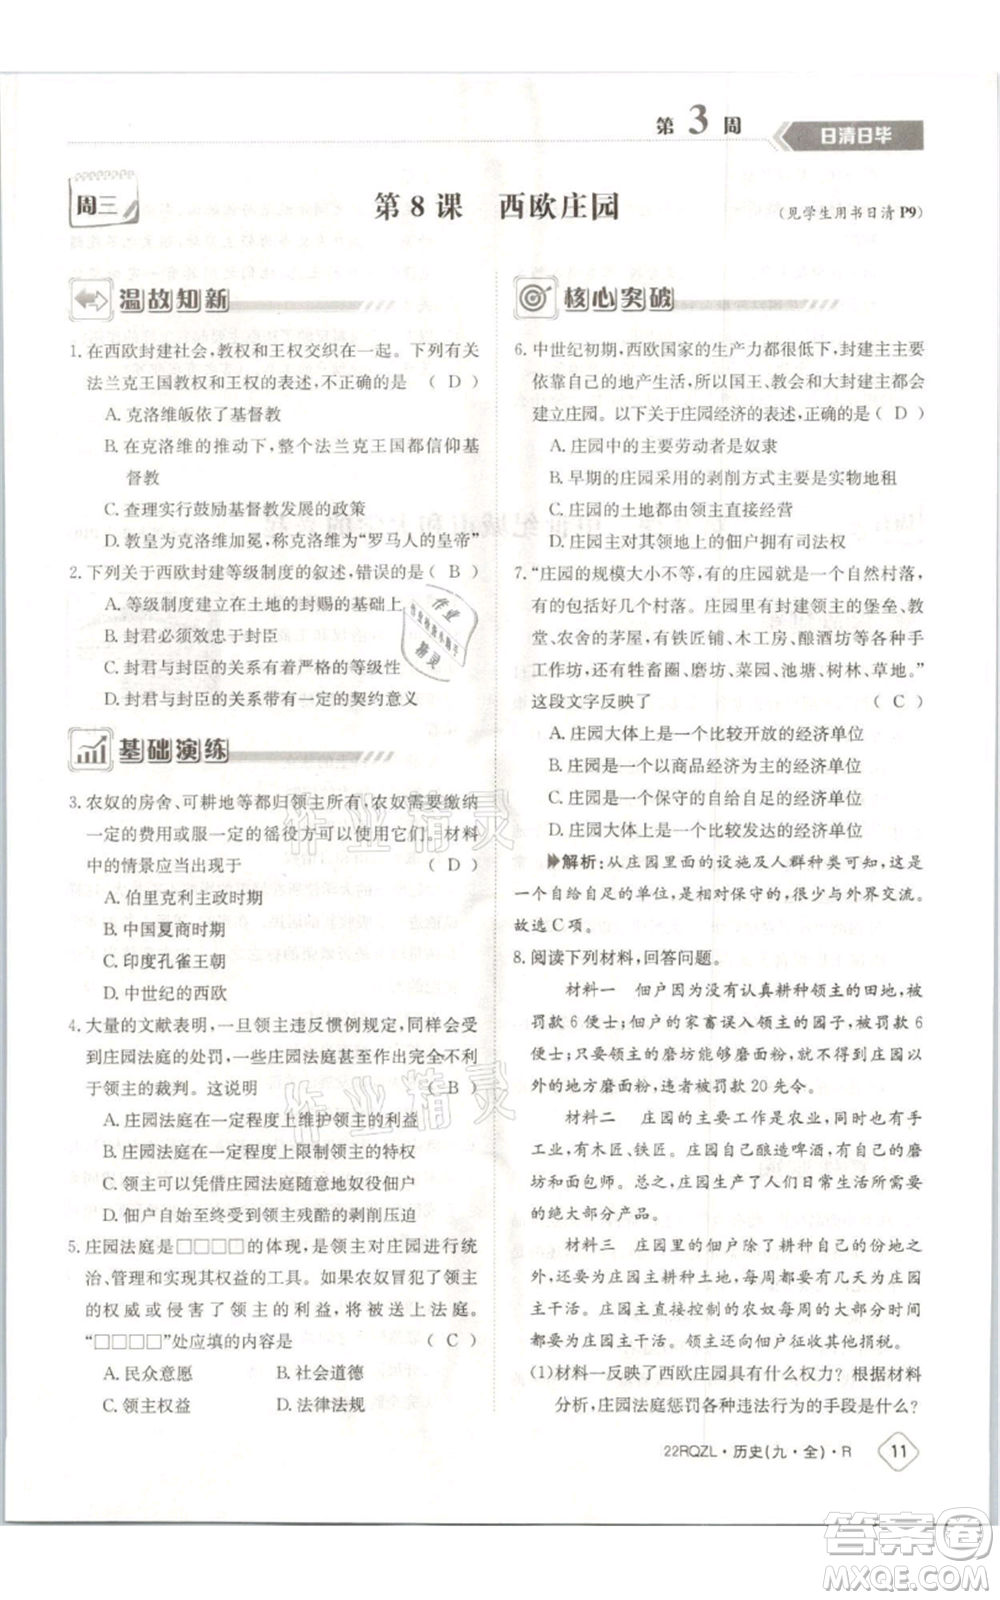 第 3 周
日清日毕
周三
第 8 课 西欧庄园
(见学生用书日清 P9)
温故知新
1. 在西欧封建社会,教权和王权交织在一起。下列有关
法兰克王国教权和王权的表述,不正确的是 ( D )
A. 克洛维皈依了基督教
B. 在克洛维的推动下,整个法兰克王国都信仰基
督教
C. 查理实行鼓励基督教发展的政策
D. 教皇为克洛维加冕为“罗马人的皇帝”
2. 下列关于西欧封建等级制度的叙述,错误的是 ( B )
A. 等级制度建立在土地的封赐的基础上
B. 封君必须效忠于封臣
C. 封君与封臣的关系有着严格的等级性
D. 封君与封臣的关系带有一定的契约意义
基础演练
3. 农奴的房舍、可耕地等都归领主所有,农奴需要缴纳
一定的费用或服一定的徭役方可以使用它们。材料
中的情景应当出现于 ( D )
A. 伯里克利主政时期
B. 中国夏商时期
C. 印度孔雀王朝
D. 中世纪的西欧
4. 大量的文献表明,一旦领主违反惯例规定,同样会受
到庄园法庭的处罚,一些庄园法庭甚至作出完全不利
于领主的裁判。这说明 ( B )
A. 庄园法庭在一定程度上维护领主的利益
B. 庄园法庭在一定程度上限制领主的特权
C. 领主可以凭借庄园法庭随意地奴役佃户
D. 佃户自始至终受到领主残酷的剥削压迫
5. 庄园法庭是□□□□的体现,是领主对庄园进行统
治、管理和实现其权益的工具。如果农奴冒犯了领主
的权威或侵害了领主的利益,将被送上法庭。
“□□□□”处应填的内容是 ( C )
A. 民众意愿 B. 社会道德
C. 领主权益 D. 法律法规
核心突破
6. 中世纪初期,西欧国家的生产力都很低下,封建主主要
依靠自己的地产生活,所以国王、教会和大封建主都会
建立庄园。以下关于庄园经济的表述,正确的是( D )
A. 庄园中的主要劳动者是奴隶
B. 早期的庄园采用的剥削方式主要是实物地租
C. 庄园的土地都由领主直接经营
D. 庄园主对其领地上的佃户拥有司法权
7. “庄园的规模大小不等,有的庄园就是一个自然村落,
有的包括好几个村落。庄园里有封建领主的堡垒、教
堂、农舍的茅屋,有铁匠铺、木工房、酿酒坊等各种手
工作坊,还有牲畜圈、磨坊、菜园、池塘、树林、草地。”
这段文字反映了 ( C )
A. 庄园大体上是一个比较开放的经济单位
B. 庄园是一个以商品经济为主的经济单位
C. 庄园是一个保守的自给自足的经济单位
D. 庄园大体上是一个比较发达的经济单位
解析:从庄园里面的设施及人群种类可知,这是
一个自给自足的单位,是相对保守的,很少与外界交流。
故选 C 项。
8. 阅读下列材料,回答问题。
材料一 佃户因为没有认真耕种领主的田地,被
罚款 6 便士;佃户的家畜误入领主的园子,被罚款 6
便士;只要不用领主的磨坊磨面粉,而是在庄园以
外的地方磨面粉,违者被罚款 20 先令。
材料二 庄园的主要工作是农业,同时也有手
工业,有木匠、铁匠。庄园自己酿造啤酒,有自己的
厨师和面包师。总之,庄园生产了人们日常生活所需
的绝大部分产品。
材料三 庄园里的佃户除了耕种自己的份地之
外,还要为庄园主耕种土地,每周都要有三天在庄园
主干活。庄园主直接控制的农奴每周的大部分时间都
要为庄园主干活。领主还向佃户征收其他捐税。
(1)材料一反映了西欧庄园具有什么权力? 根据材料
分析,庄园法庭惩罚各种违法行为的手段是什么?
22RQZL·历史(九·全)·R
11
作业精灵
作业精灵
作业
精灵
答案圈
MXQE.COM